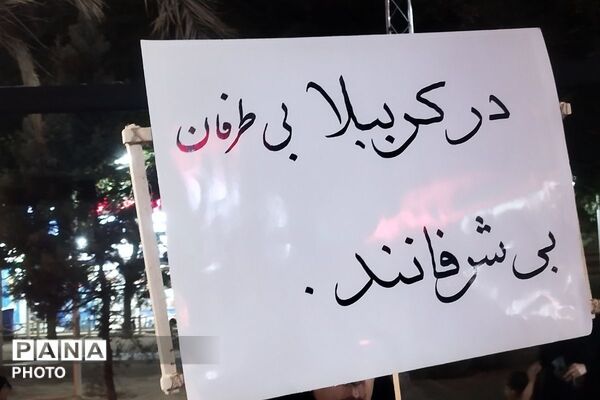 در کربلا بی طرفان
بی شرفانند .
PANA
PHOTO